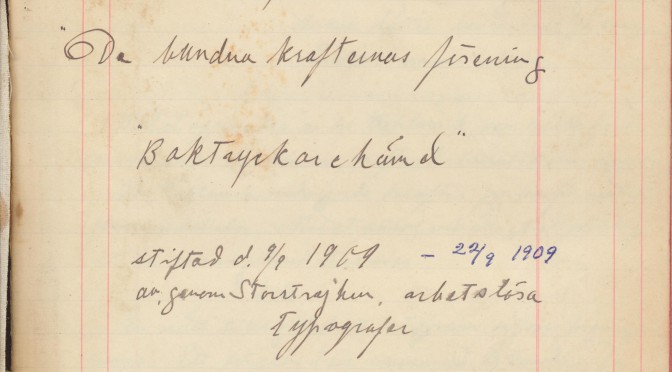 "De bundna krafternas förening
"Boktryckarehämd"
stiftad d. 9/9 1909 – 22/9 1909
av, genom Storstrejken, arbetslösa
Typografer